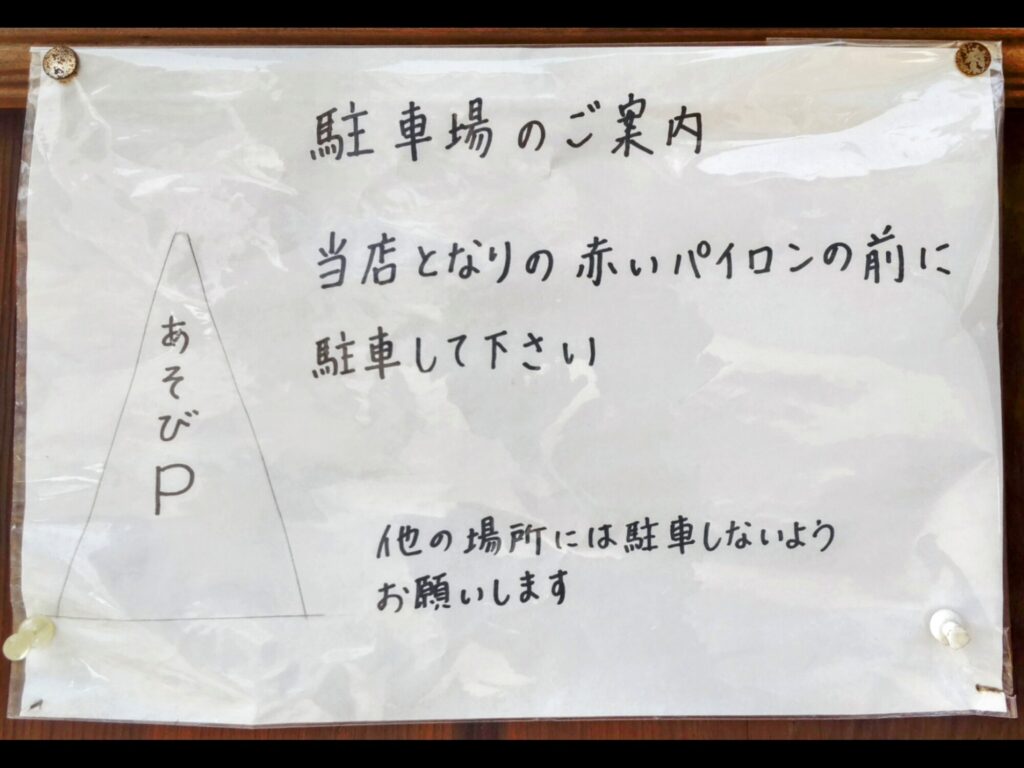 駐車場のご案内
当店となりの赤いパイロンの前に
駐車して下さい
あそびP
他の場所には駐車しないよう
お願いします